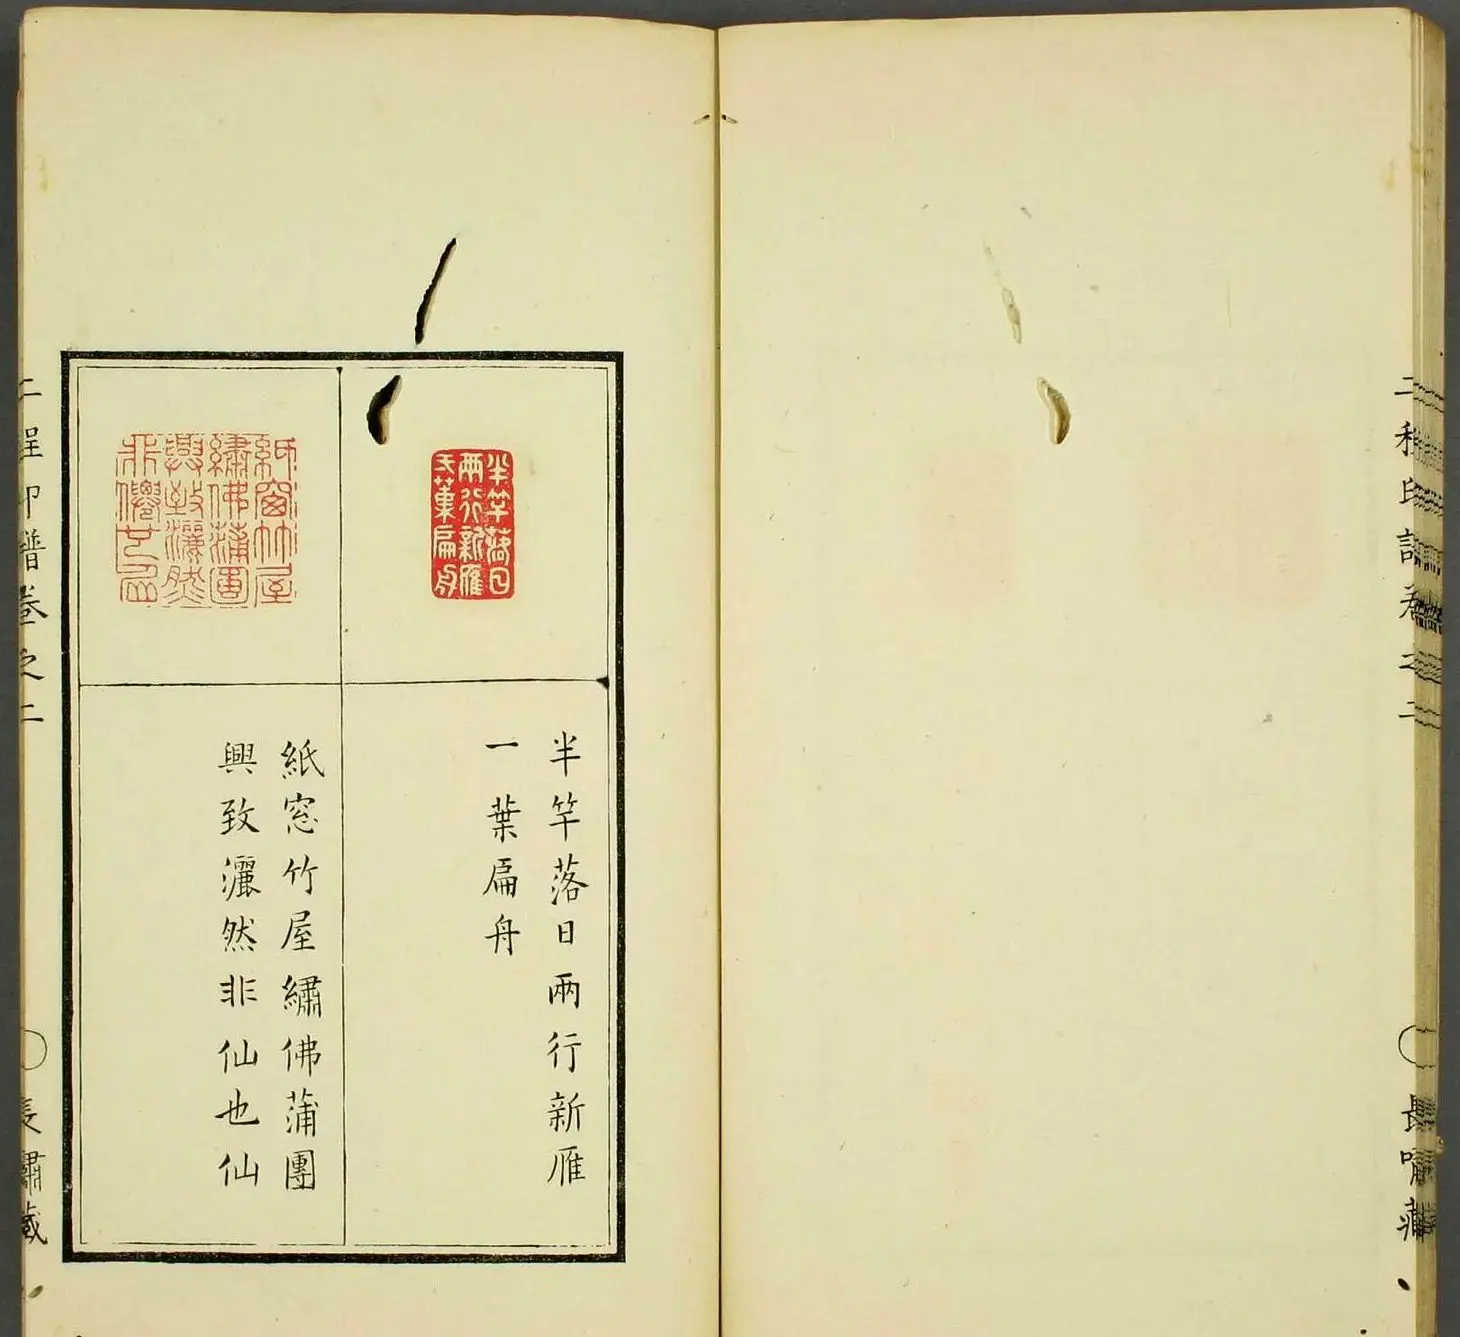 半竿落日兩行新雁
一葉扁舟
紙窓竹屋繡佛蒲團
興致灑然非仙也仙
半竿落日
兩行新雁
一葉扁舟
紙窗竹屋
繡佛蒲團
興致灑然
非僊也仙
二程印譜卷之二
長嘯藏
二程印譜卷之二
長嘯藏